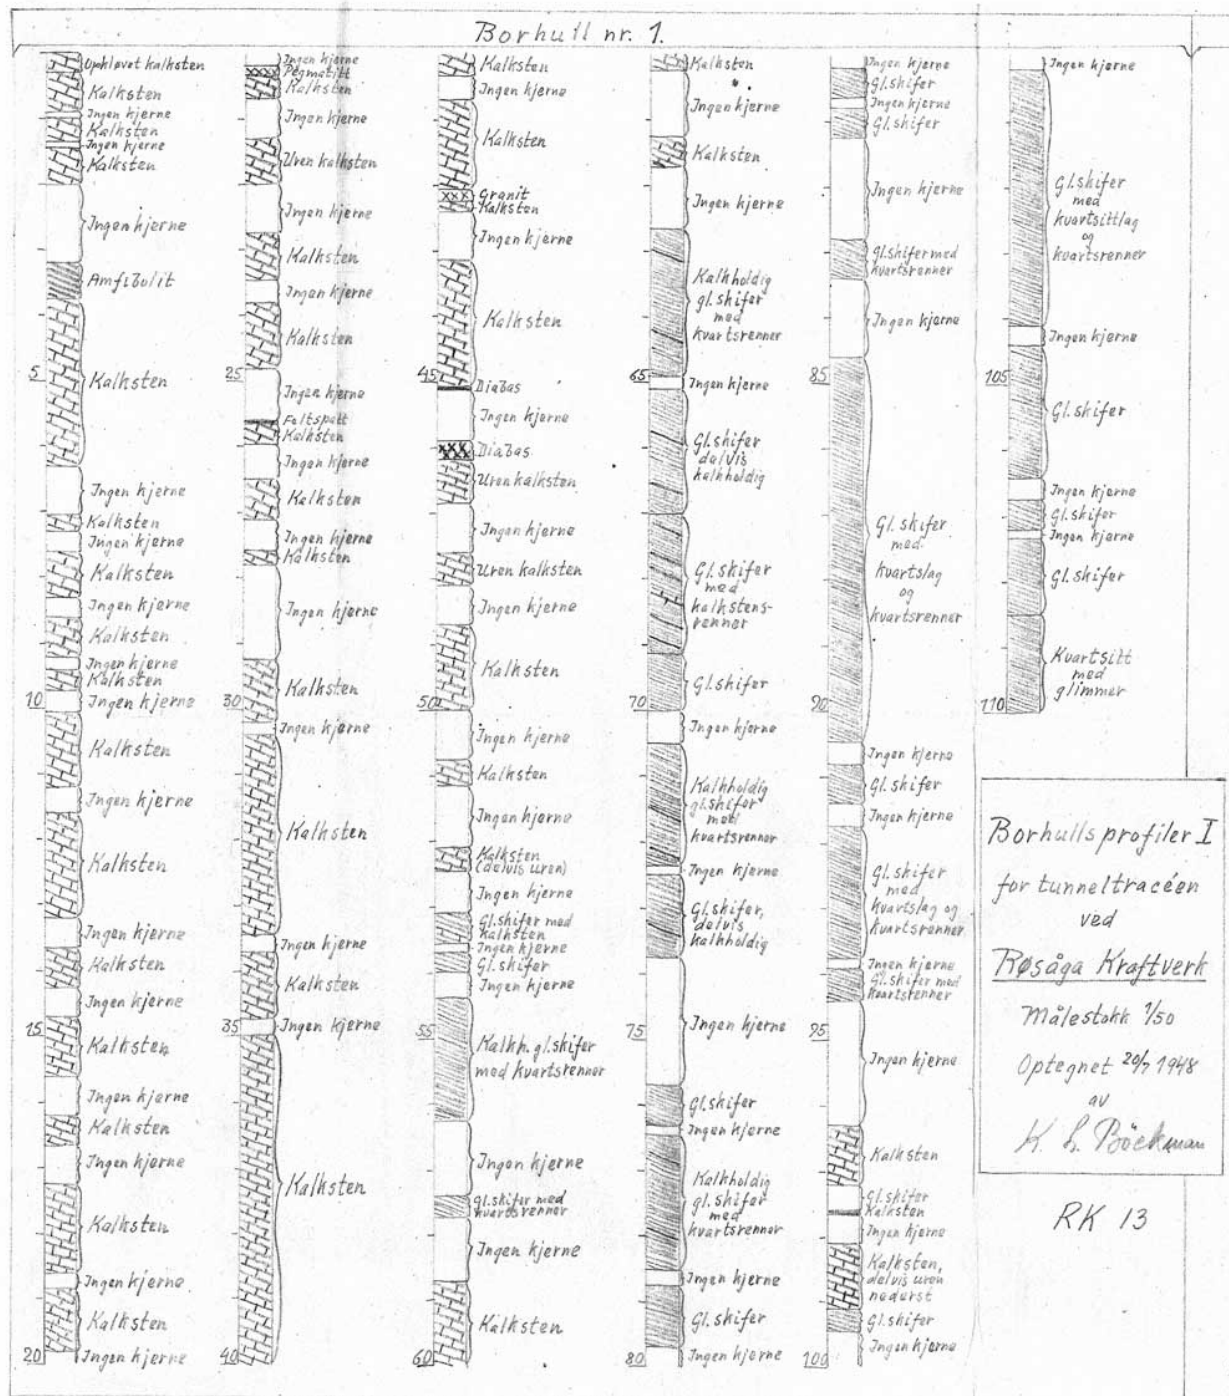 Borhull nr. 1.
Opkløvet kalksten
Kalksten
Ingen kjerne
Kalksten
Ingen kjerne
Kalksten
Ingen kjerne
Amfibolit
5
Kalksten
Ingen kjerne
Kalksten
Ingen kjerne
Kalksten
Ingen kjerne
Kalksten
Ingen kjerne
Kalksten
10
Ingen kjerne
Kalksten
Ingen kjerne
Kalksten
Ingen kjerne
Kalksten
Ingen kjerne
15
Kalksten
Ingen kjerne
Kalksten
Ingen kjerne
Kalksten
Ingen kjerne
Kalksten
20
Ingen kjerne
Ingen kjerne
Pegmatitt
Kalksten
Ingen kjerne
Uren kalksten
Ingen kjerne
Kalksten
Ingen kjerne
Kalksten
25
Ingen kjerne
Feltspatt
Kalksten
Ingen kjerne
Kalksten
Ingen kjerne
Kalksten
Ingen kjerne
Kalksten
30
Ingen kjerne
Kalksten
Ingen kjerne
Kalksten
35
Ingen kjerne
Kalksten
40
Kalksten
Ingen kjerne
Kalksten
Granit
Kalksten
Ingen kjerne
Kalksten
45
Diabas
Ingen kjerne
Diabas
Uren kalksten
Ingen kjerne
Uren kalksten
Ingen kjerne
Kalksten
50
Ingen kjerne
Kalksten
Ingen kjerne
Kalksten
(delvis uren)
Ingen kjerne
Gl.skifer med
kalksten
Ingen kjerne
Gl. skifer
Ingen kjerne
55
Kalkh. gl.skifer
med kvartsrenner
Ingen kjerne
Gl.skifer med
kvartsrenner
Ingen kjerne
Kalksten
60
Kalksten
Ingen kjerne
Kalksten
Ingen kjerne
Kalkholdig
gl. skifer
med
kvartsrenner
65
Ingen kjerne
Gl.skifer
delvis
kalkholdig
Gl. skifer
med
kalkstens-
renner
Gl.skifer
70
Ingen kjerne
Kalkholdig
gl.skifer
med
kvartsrenner
Ingen kjerne
Gl.skifer,
delvis
kalkholdig
75
Ingen kjerne
Gl.skifer
Ingen kjerne
Kalkholdig
gl. skifer
med
kvartsrenner
Ingen kjerne
Gl. skifer
80
Ingen kjerne
Ingen kjerne
Gl.skifer
Ingen kjerne
Gl. skifer
Ingen kjerne
Gl.skifer med
kvartsrenner
Ingen kjerne
85
Gl. skifer
med
kvartslag
og
kvartsrenner
90
Ingen kjerne
Gl. skifer
Ingen kjerne
Gl. skifer
med
kvartslag og
kvartsrenner
Ingen kjerne
Gl. skifer med
kvartsrenner
95
Ingen kjerne
Kalksten
Gl. skifer
Kalksten
Ingen kjerne
Kalksten,
delvis uren
nederst
Gl. skifer
100
Ingen kjerne
Ingen kjerne
Gl.skifer
med
kvartsittlag
og
kvartsrenner
Ingen kjerne
105
Gl. skifer
Ingen kjerne
Gl. skifer
Ingen kjerne
Gl. skifer
Kvartsitt
med
glimmer
110
Borhullsprofiler I
for tunneltracéen
ved
Røsåga Kraftverk
Målestokk 1/50
Optegnet 20/7 1948
av
K. L. Böckman
RK 13